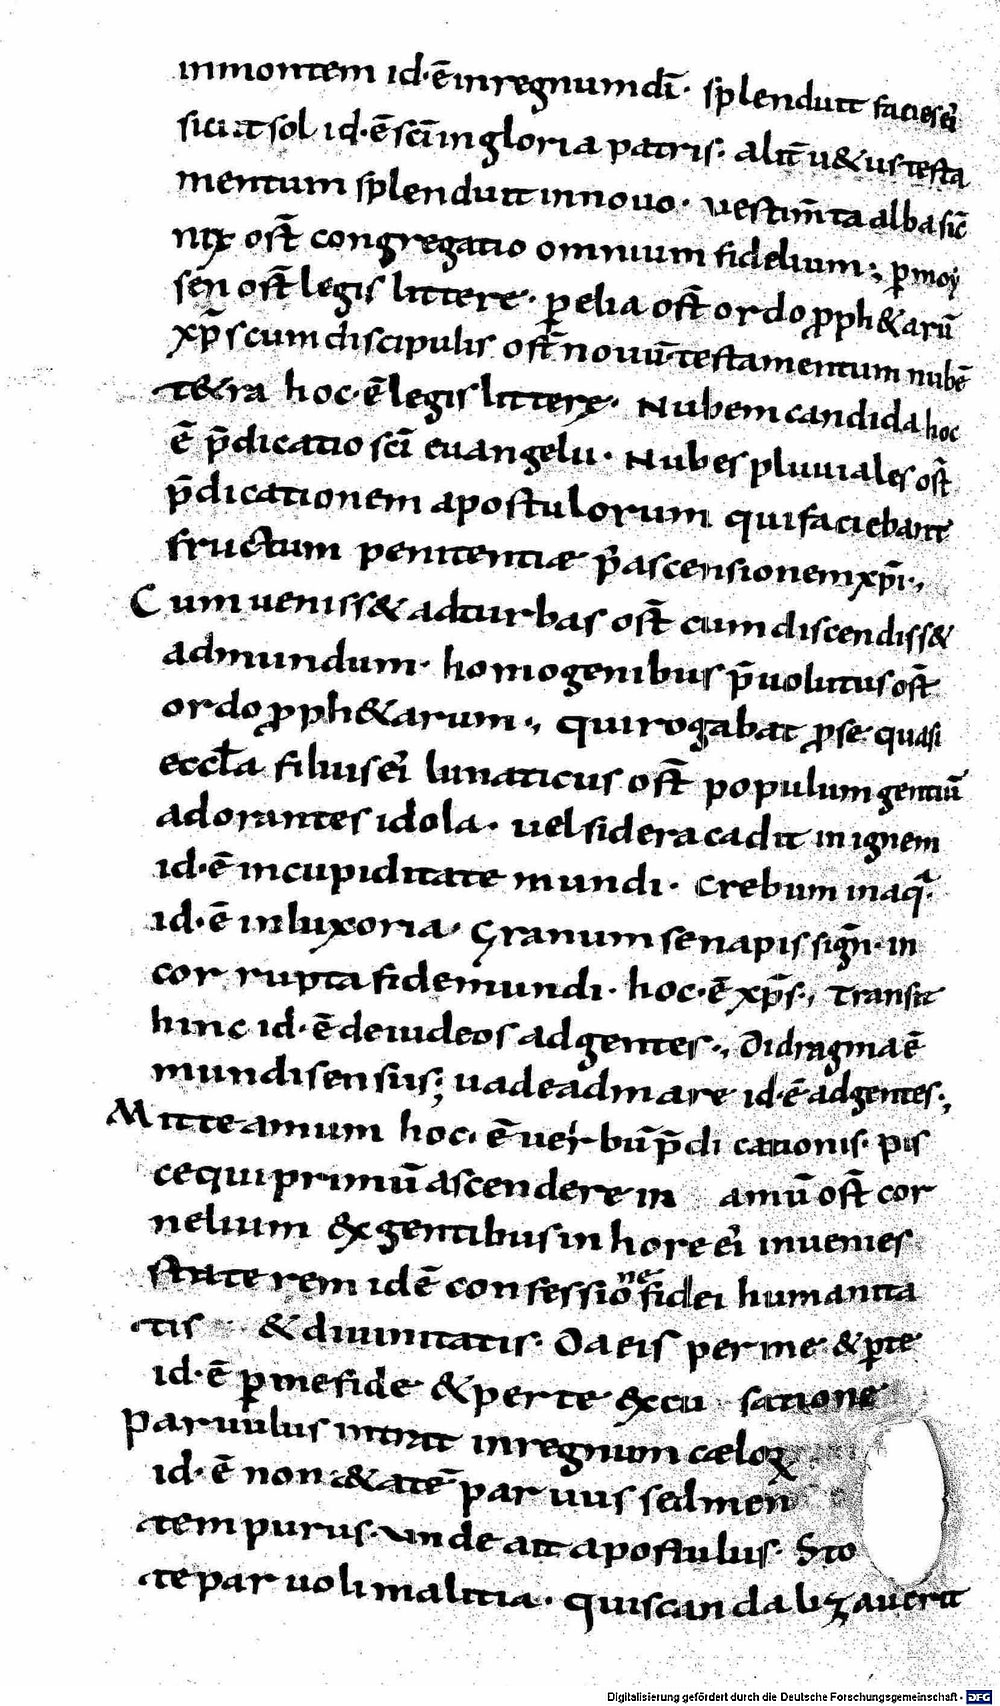 inmontem id·ē inregnum dī· splenduit facies eī
sicut sol id·ē scī in gloria patris· alīt u&us testa
mentum splenduit innouo· uestim̄ta alba sic̄
nix ost̄ congregatio omnium fidelium·, p̄ moy
sen ost̄ legis littere· p̱ elia ost̄ ordo ꝓph&arū
xp̄s cum discipulis ost̄ nouū testamentum nubē
t&ra hoc·ē legis littere· Nubem candida hoc
ē p̄dicatio scī euangelii· Nubes pluuiales ost̄
p̄dicationem apostulorum qui faciebant
fructum penitentiæ p̄ ascensionem xp̄i·,
Cum ueniss& adturbas ost̄ cum discendiss&
admundum· homo genibus p̄uolutus ost̄
ordo ꝓph&arum·, qui rogabat ꝓ se quasi
eccl̄a filius eī lunaticus ost̄ populum gentiū
adorantes idola· uel sidera cadit in ignem
id·ē incupiditate mundi· Crebum in aq̄·
id·ē inluxoria· Granum senapis sign̄· in
cor rupta fide mundi· hoc·ē xp̄s·, Transit
hinc id·ē deiudeos ad gentes·, Didragma ē
mundi sensus; uade admare id·ē adgentes·,
Mitte amum hoc·ē uerbū p̄dicationis· pis
ce qui primū ascendere in amū ost̄ cor
nelium ex gentibus in hore eī inuenies
staterem id ē confessione fidei humanita
tis & diuinitatis· Da eis per me & p̱ te
id·ē p̱ me fide & per te excu satione
Paruulus intrat inregnum cæloꝝ
id·ē non &atē paruus sed men
tem purus· unde ait apostulus· Sto
te paruoli malitia· qui scandalizauerit
Digitalisierung gefördert durch die Deutsche Forschungsgemeinschaft - DFG